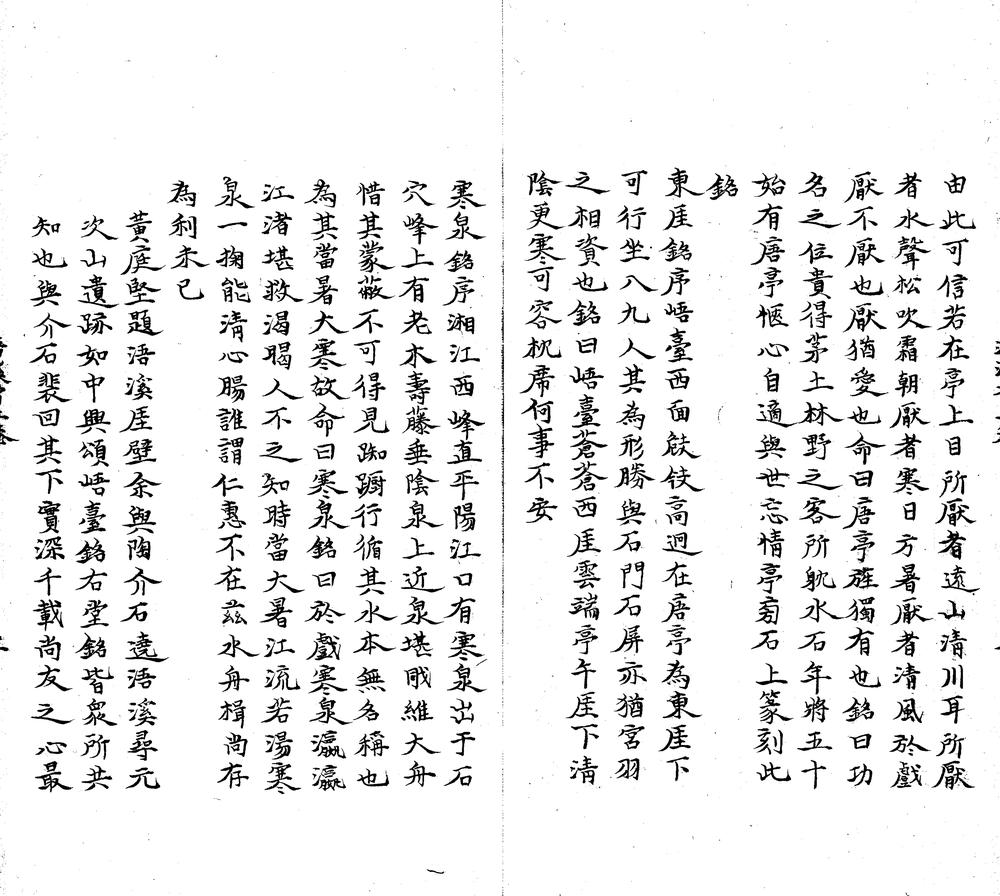 由此可信若在亭上目所厭者遠山清川耳所厭
者水聲松吹霜朝厭者寒日方暑厭者清風於戲
厭不厭也厭猶愛也命曰𢈪亭旌獨有也銘曰功
名之位貴得茅土林野之客所躭水石年將五十
始有𢈪亭愜心自適與世忘情亭旁石上篆刻此
銘
東崖銘序峿臺西面㩻𨱎高迥在𢈪亭為東崖下
可行坐八九人其為形勝與石門石屏亦猶宮羽
之相資也銘曰峿臺蒼蒼西崖雲端亭午崖下清
陰更寒可容枕席何事不安
寒泉銘序湘江西峰直平陽江口有寒泉出于石
穴峰上有老木壽藤垂陰泉上近泉堪戙維大舟
惜其蒙蔽不可得見踟蹰行循其水本無名稱也
為其當暑大寒故命曰寒泉銘曰於戲寒泉瀛瀛
江渚堪救渴暍人不之知時當大暑江流若湯寒
泉一掬能清心腸誰謂仁惠不在茲水舟楫尚存
為利未已
黃庭堅題浯溪崖壁余與陶介石遶浯溪尋元
次山遺跡如中興頌峿臺銘右堂銘皆衆所共
知也與介石裴回其下實深千載尚友之心最